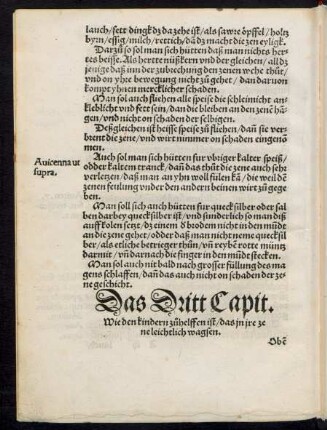 lauch/fett dingk dz da zehe ist/als sawre öpffel/holtz
byrn/essig/milch/rettich/dā dz macht die zen eyligk.
Darzů so sol man sich hütten daß man nichts her
tes beisse. Als hertte nüßkern vnd der gleichen/all dz
jenige daß inn der zubrechung den zenen wehe thüt/
vnd on yhre bewegung nicht zů gehet/dan dar von
kompt yhnen mercklicher schaden.
Man sol auch fliehen alle speise die schleimicht an-
kleblicht vñd fett sein/dan die bleiben an den zenē hā-
gen/vnd nicht on schaden der selbigen.
Deßgleichen ist heisse speise zů flichen/dañ sie ver-
brent die zene/vnd wirt nimmer on schaden eingenō
men.
Auicenna ut
supra.
Auch sol man sich hütten fur vbriger kalter speiß/
oder kaltem tranck/dañ das thůt die zene auch sehr
verletzen/daß man an yhn woll fülen kā/die weil dē
zenen feulung vnder den andern beinen wirt zů gege
ben.
Man soll sich auch hütten fur quecksilber oder sal
ben dar bey quecksilber ist/vnd sünderlich so man diß
auff kolen setzt/dz einem d boddem nicht in den mūde
an die zene gehet/odder daß man nicht neme quecksil
ber/als etliche betrieger thün/vñ reybē rotte müntz
darmit/vñ darnach die finger in den mūde stecken.
Man sol auch nit bald nach grosser füllung des ma
gens schlaffen/dañ das auch nicht on schaden der ze-
ne geschicht.
Das Dritt Capit.
Wie den kindern zů helffen ist/das jn jre ze
ne leichtlich wagsen.
Obē